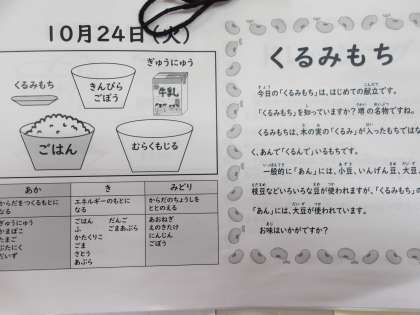 10月24日(火)
くるみもち
きんぴら
ごぼう
ぎゅうにゅう
牛乳
ごはん
むらくもじる
あか
き
みどり
からだをつくるもとに
なる
エネルギーのもとに
なる
からだのちょうしを
ととのえる
ぎゅうにゅう
かまぼこ
たまご
ぶたにく
だいず
ごはん だんご
ふ ごまあぶら
かたくりこ
ごま
さとう
あぶら
あおねぎ
えのきたけ
にんじん
ごぼう
くるみもち
今日の「くるみもち」は、はじめての献立です。
「くるみもち」を知っていますか?堺の名物ですね。
くるみもちは、木の実の「くるみ」が入ったもちではな
く、あんで「くるんで」いるもちです。
一般的に「あん」には、小豆、いんげん豆、大豆、
枝豆などいろいろな豆が使われますが、「くるみもち」の
「あん」には、大豆が使われています。
お味はいかがですか?